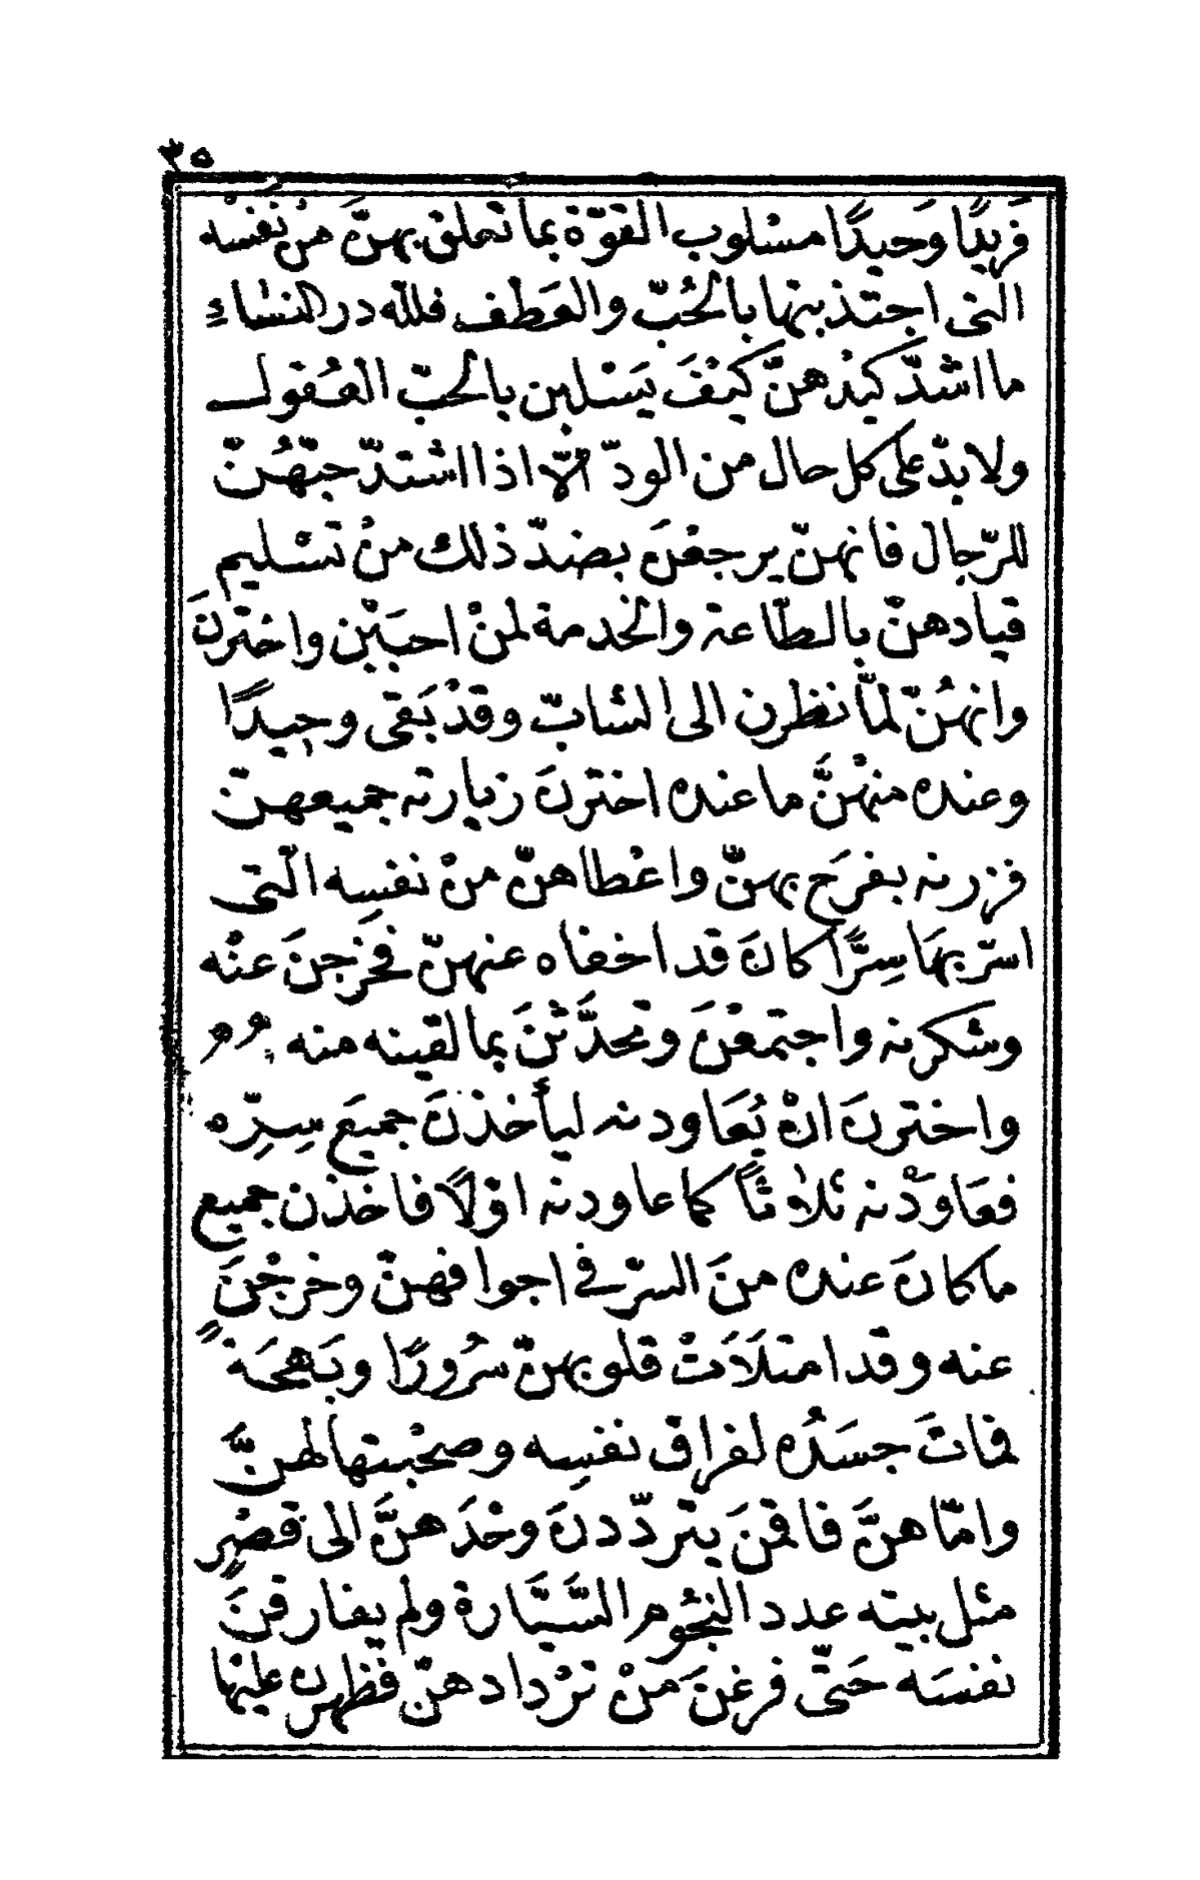 ٣٥
فَريدًا وَحيدًا مسْلوب القوّة بما تعلق بهنَّ منْ نفسْه
التى اجتذبنها بالحُبّ والعَطف فلله در النساء
ما اشدّ كيْدهنّ كيْفَ يَسْلبن بالحبّ العُقول
ولا بدّ على كل حال من الودّ الّا اذا اشتدّ حبّهُنّ
للرّجال فانهنّ يرجعْنَ بضدّ ذلك منْ تسْليم
قيادهنّ بالطّاعة والخدمة لمنْ احبَبْن واخْترنَ
وانهُنّ لمّا نظرن الى الشابّ وقدْ بَقى وحيدًا
وعنده منهْنَّ ما عنده اخترنَ زيارته جميعهنّ
فزرنه بفرَح بهنّ واعْطاهنّ منْ نفسِه الّتى
اسرّ بهَا سِرًّا كانَ قد اخفاه عنهنّ فخَرجنَ عنْه
وشكرنه واجتمعْنَ وتحدَّثْنَ بما لقينه منه
واخترنَ انْ يُعَاودنه ليأخذنَ جميَع سِرِّه
فعَاوَدْنه ثلاثاً كما عاودنه اوّلًا فاخَذن جميع
ما كانَ عنده منَ السرّ فى اجوافهنّ وخرجْنَ
عنه وقد امتلَاَتْ قلوبهنّ سرُورًا وبَهْجَةً
فماتَ جسَدُه لفراق نفسِه وصحْبتها لهنَّ
وامّا هنَّ فاقمْنَ يتردّدنَ وحْدَهنَّ الى قصْرٍ
مثل بيته عدد النجُوم السَّيَّارة ولم يفارقنَ
نفسَه حَتّى فرغنَ منْ ترْدادهنّ فظهرن عليْها